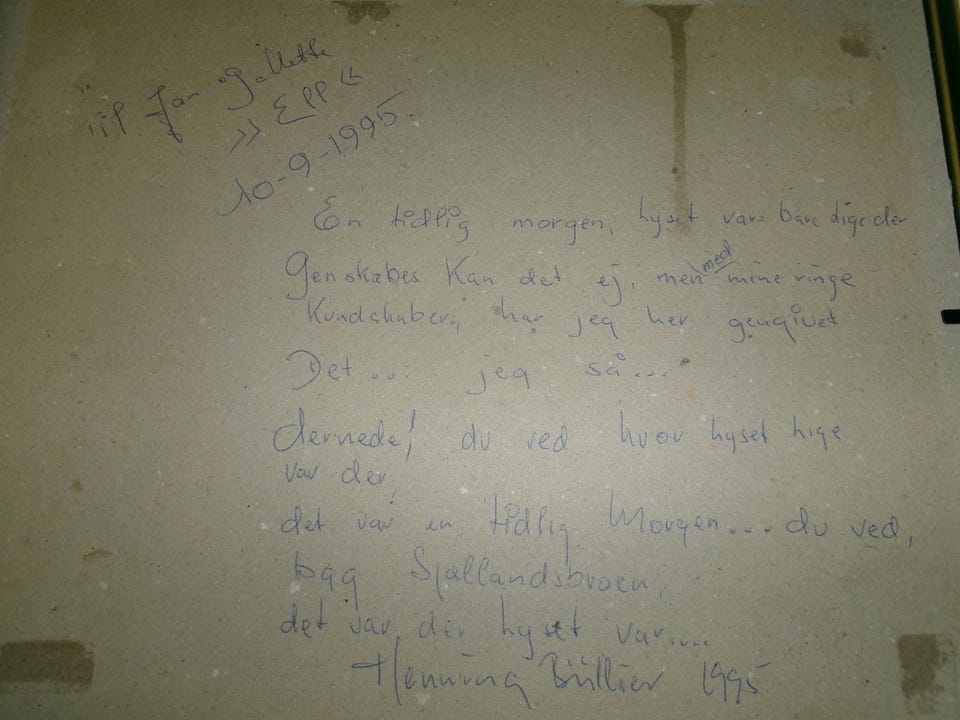 til Jan og Mette
» Epp «
10-9-1995.
En tidlig morgen, lyset var bare lige der
Genskabes Kan det ej, men med mine ringe
Kundskaber, har jeg her gengivet
Det... jeg så...
dernede! du ved hvor lyset lige
var der,
det var en tidlig Morgen... du ved,
bag Sjællandsbroen,
det var der lyset var....
Henning 1995